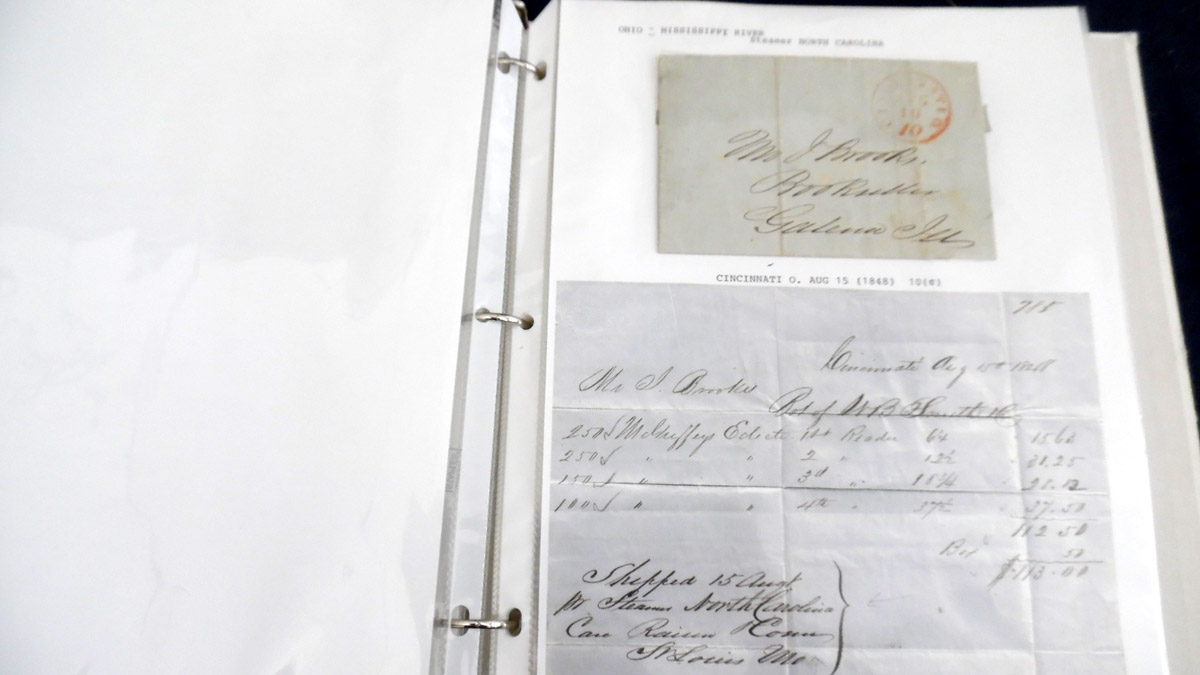 OHIO - MISSISSIPPI RIVER
Steamer NORTH CAROLINA
10
10
Mr J Brooks.
Bookseller
Galena Ill
CINCINNATI O. AUG 15 (1848) 10(¢)
718
Cincinnati Aug 15th 1848
Mr J. Brooks
Bot of W B Smith & Co
250 McGuffeys Eclectic 1st Reader 6¼ 15 62
250 " " 2 " 12½ 31.25
150 " " 3d " 18¾ 28.12
100 " " 4th " 37½ 37.50
112 50
Box 50
$113.00
Shipped 15 Augt
pr Steamer North Carolina
Care
St Louis Mo